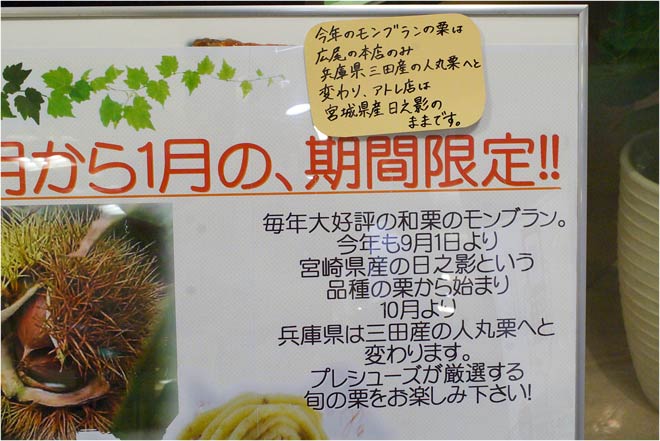 今年のモンブランの栗は
広尾の本店のみ
兵庫県三田産の人丸栗へと
変わり、アトレ店は
宮城県産日之影の
ままです。
月から1月の、期間限定!!
毎年大好評の和栗のモンブラン。
今年も9月1日より
宮崎県産の日之影という
品種の栗から始まり
10月より
兵庫県は三田産の人丸栗へと
変わります。
プレシューズが厳選する
旬の栗をお楽しみ下さい!